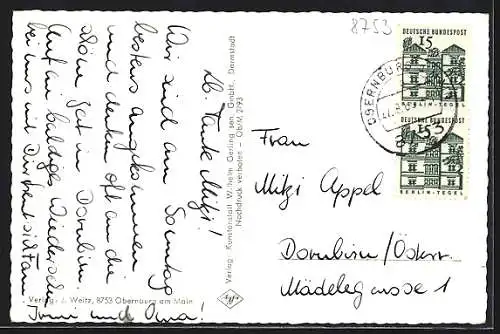 8753
DEUTSCHE BUNDESPOST
15
BERLIN-TEGEL
DEUTSCHE BUNDESPOST
15
BERLIN-TEGEL
OBERNBURG
Lb. Tante Mitzi!
Wir sind am Sonntag
bestens angekommen
und denken oft an die
schöne Zeit in Dornbirn.
Auf ein baldiges Wiedersehen
bei uns mit
Irmi und Oma!
Verlag: Kunstanstalt Wilhelm Gerling sen. GmbH., Darmstadt
Nachdruck verboten - Ob/M 2093
Agfa
Verlag: J. Weitz, 8753 Obernburg am Main
Frau
Mitzi Appel
Dornbirn/Österr.
Mädelegasse 1